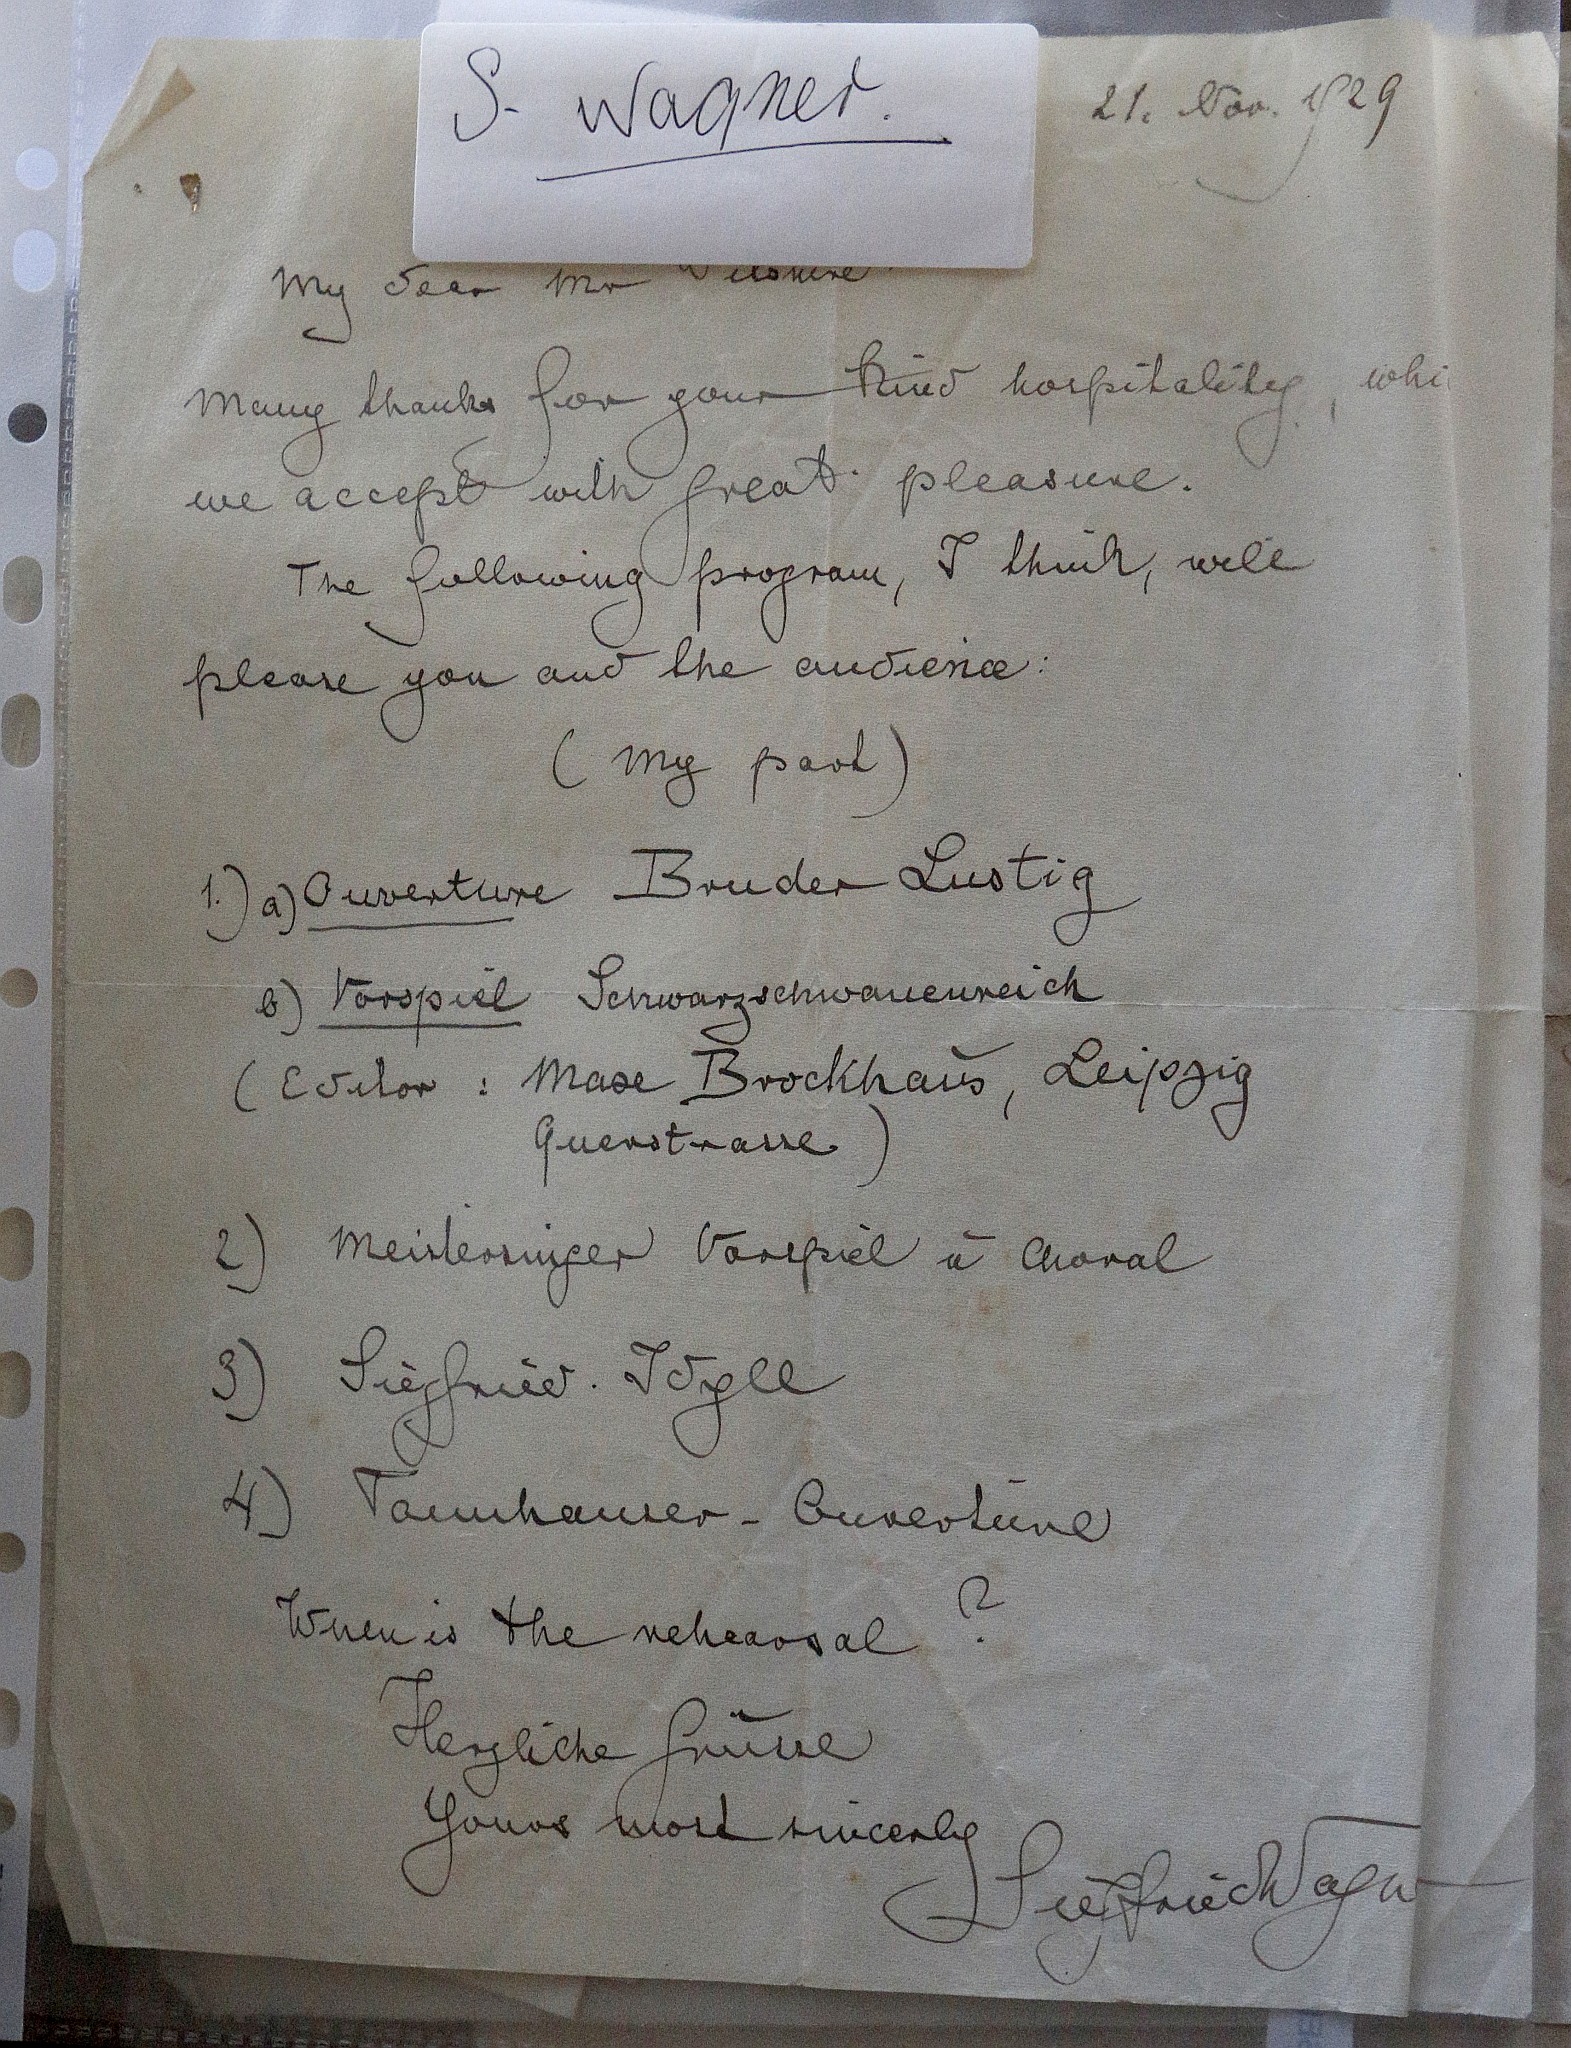 S. Wagner.
21. Nov. 1929
My dear Mr
Many thanks for your kind hospitality, whi
we accept with great pleasure.
The following program, I think, will
please you and the audience:
(My part)
1.) a) Ouverture Bruder Lustig
b) Vorspiel Schwarzschwanenreich
(Editor: Max Brockhaus, Leipzig
Querstrasse)
2) Meistersinger Vorspiel u Choral
3) Siegfried. Idyll
4) Tannhauser - Ouvertüre
When is the rehearsal?
Herzliche Grüsse
Yours most sincerly
Siegfried Wagner